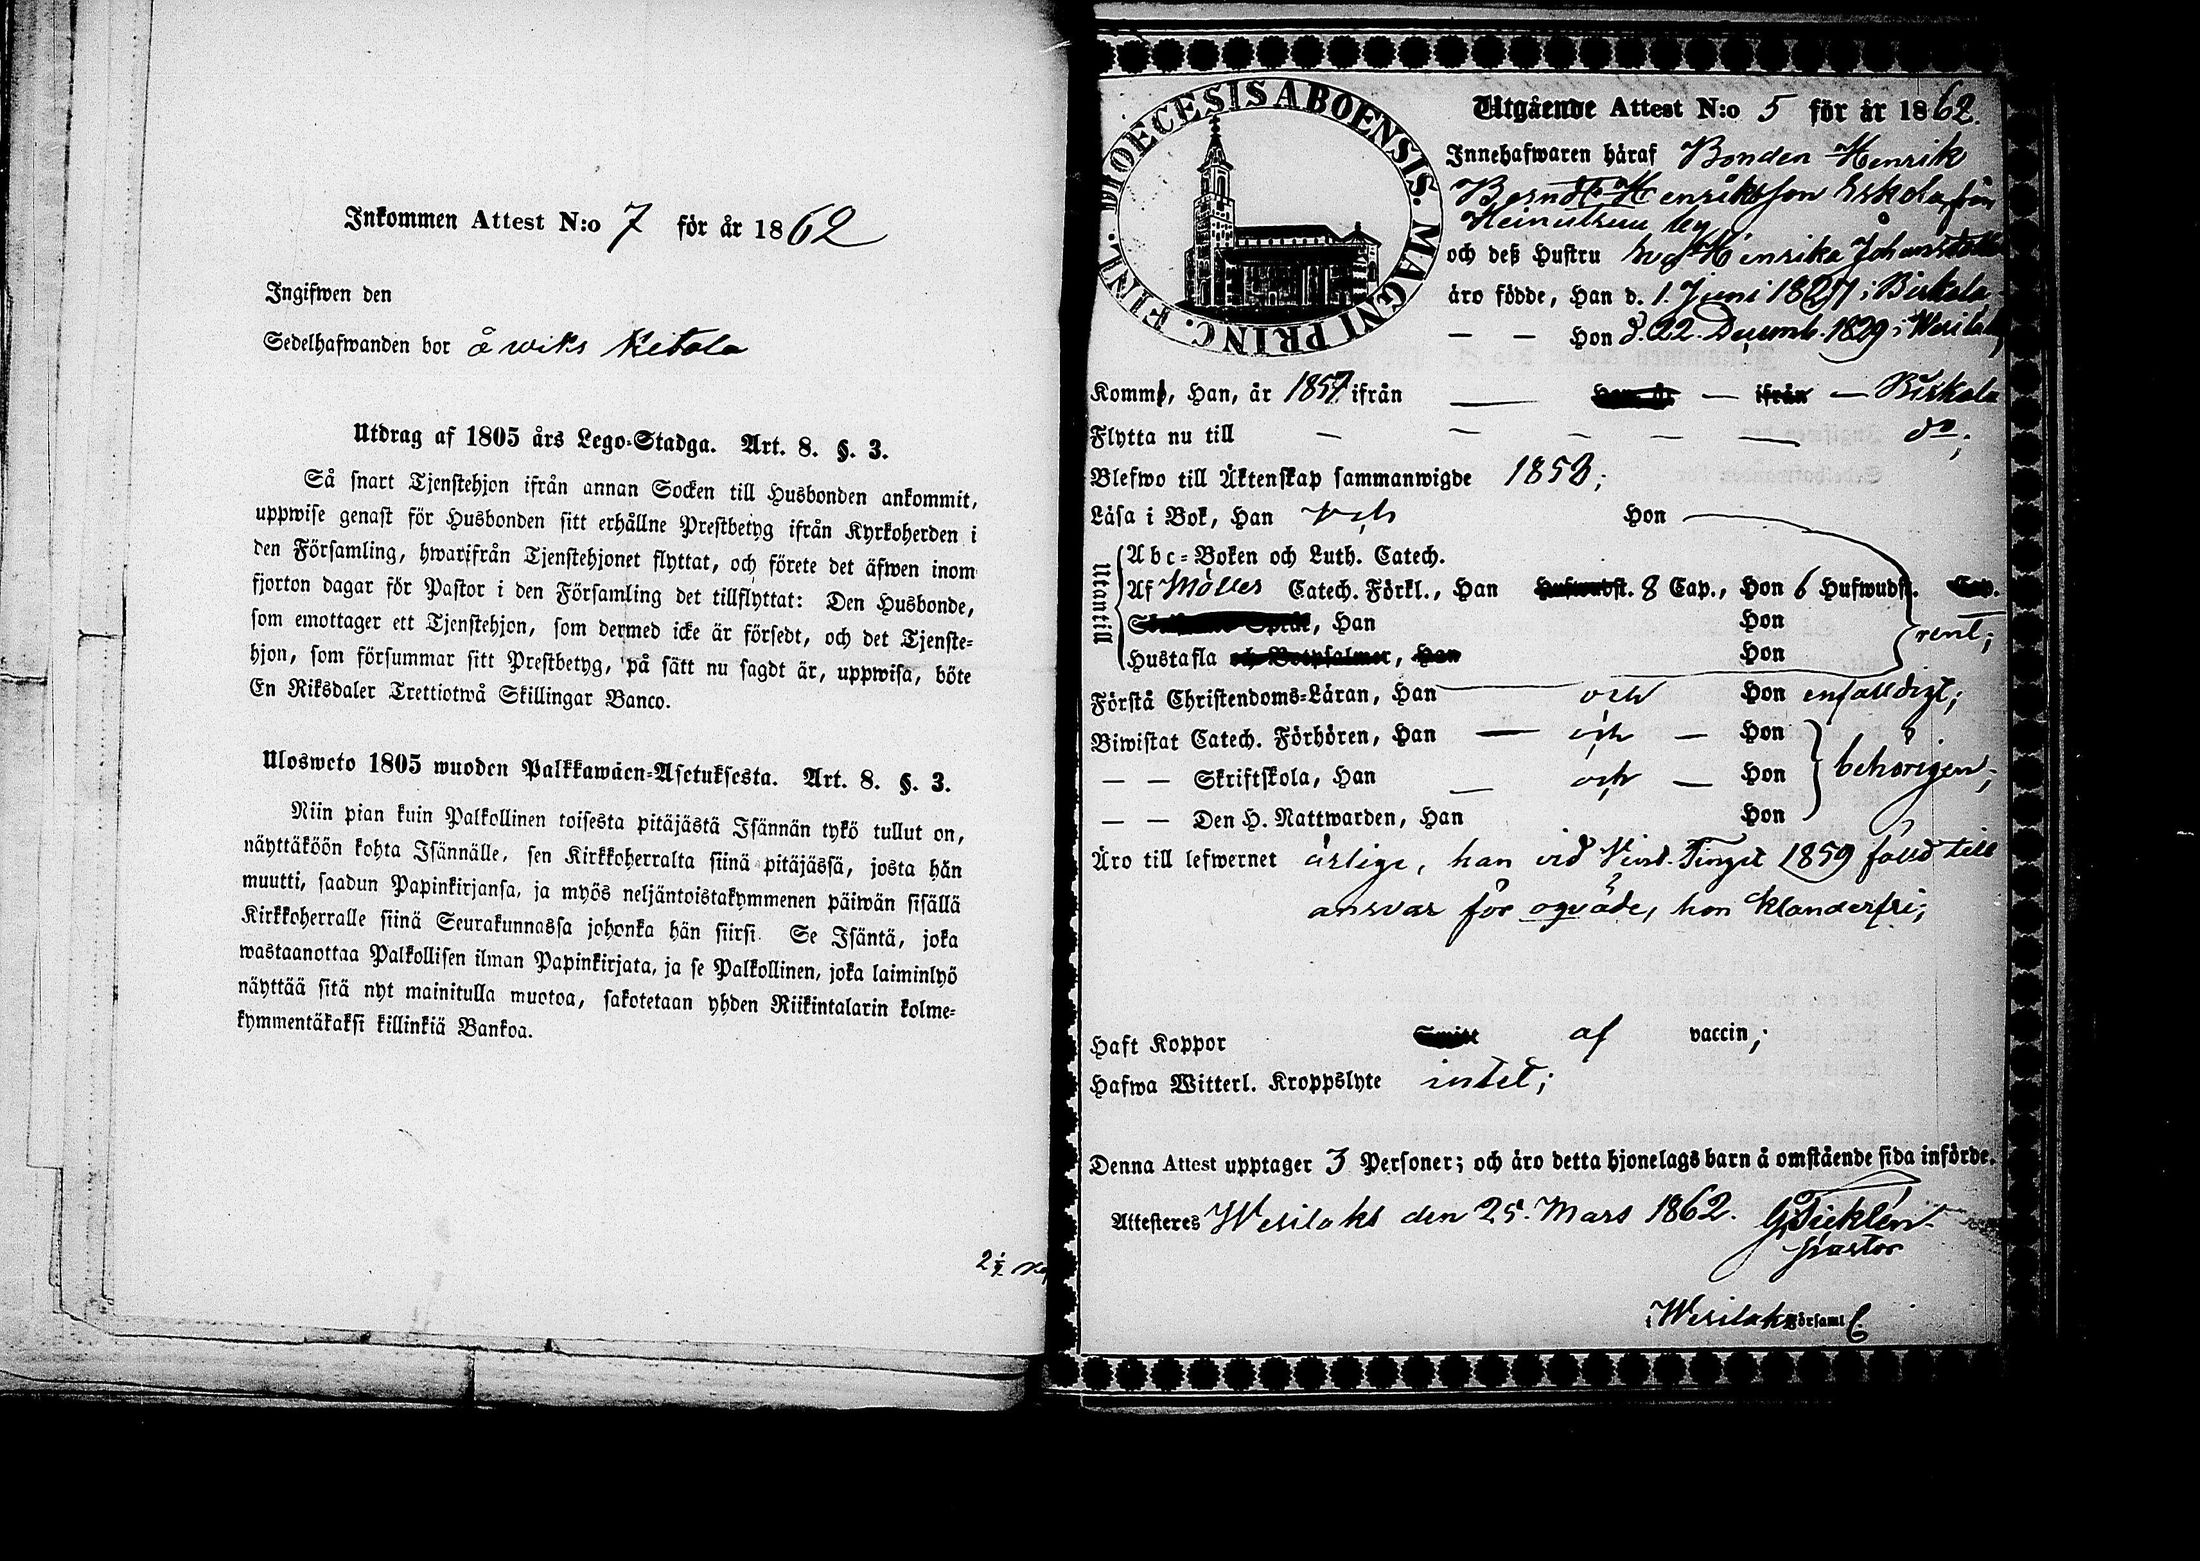 Inkommen Attest N:o 7 för år 1862
Ingifwen den
Sedelhafwanden bor å wiks Ketola
Utdrag af 1805 års Lego-Stadga. Art. 8. §. 3.
Så snart Tjenstehjon ifrån annan Socken till Husbonden ankommit,
uppwise genast för Husbonden sitt erhållne Prestbetyg ifrån Kyrkoherden i
den Församling, hwarifrån Tjenstehjonet flyttat, och förete det äfwen inom
fjorton dagar för Pastor i den Församling det tillflyttat: Den Husbonde,
som emottager ett Tjenstehjon, som dermed icke är försedt, och det Tjenste-
hjon, som försummar sitt Prestbetyg, på sätt nu sagdt är, uppwisa, böte
En Riksdaler Trettiotwå Skillingar Banco.
Ulosweto 1805 wuoden Palkkawäen-Asetuksesta. Art. 8. §. 3.
Niin pian kuin Palkollinen toisesta pitäjästä Isännän tykö tullut on,
näyttäköön kohta Isännälle, sen Kirkkoherralta siinä pitäjässä, josta hän
muutti, saadun Papinkirjansa, ja myös neljäntoistakymmenen päiwän sisällä
Kirkkoherralle siinä Seurakunnassa johonka hän siirsi. Se Isäntä, joka
wastaanottaa Palkollisen ilman Papinkirjata, ja se Palkollinen, joka laiminlyö
näyttää sitä nyt mainitulla muotoa, sakotetaan yhden Riikintalarin kolme-
kymmentäkaksi killinkiä Bankoa.
DIOECESIS ABOENSIS. MAGNI PRINC. FINL.
Utgående Attest N:o 5 för år 1862.
Innehafwaren häraf Bonden Henrik
Henriksson Eskola från
och deß Hustru Henrika Johansdotter
äro födde, Han d. 1 Juni 1827 i Birkala
— — Hon d. 22 Decemb. 1829 i Wesilaks
Komm, Han, år 1857 ifrån — Han, år — ifrån — Birkala
Flytta nu till — — — — — do;
Blefwo till Äktenskap sammanwigde 1853;
Läsa i Bok, Han och Hon
Utantill
Abc-Boken och Luth. Catech.
Af Möllers Catech. Förkl., Han Hufwudst. 8 Cap., Hon 6 Hufwudst. Cap.
Språk, Han Hon rent;
Hustafla och Botpsalmer, Han Hon
Förstå Christendoms-Läran, Han och Hon enfaldigt;
Biwistat Catech. Förhören, Han — och — Hon
— — Skriftskola, Han — och — Hon behörigen;
— — Den H. Nattwarden, Han Hon
Äro till lefwernet ärlige, han vid Vint. Tinget 1859 fälld till
ansvar för oqväde, hon klanderfri;
Haft Koppor af vaccin;
Hafwa Witterl. Kroppslyte intet;
Denna Attest upptager 3 Personer; och äro detta hjonelags barn å omstående sida införde.
Attesteras Wesilaks den 25. Mars 1862.
Pastor
i Wesilaks Församl